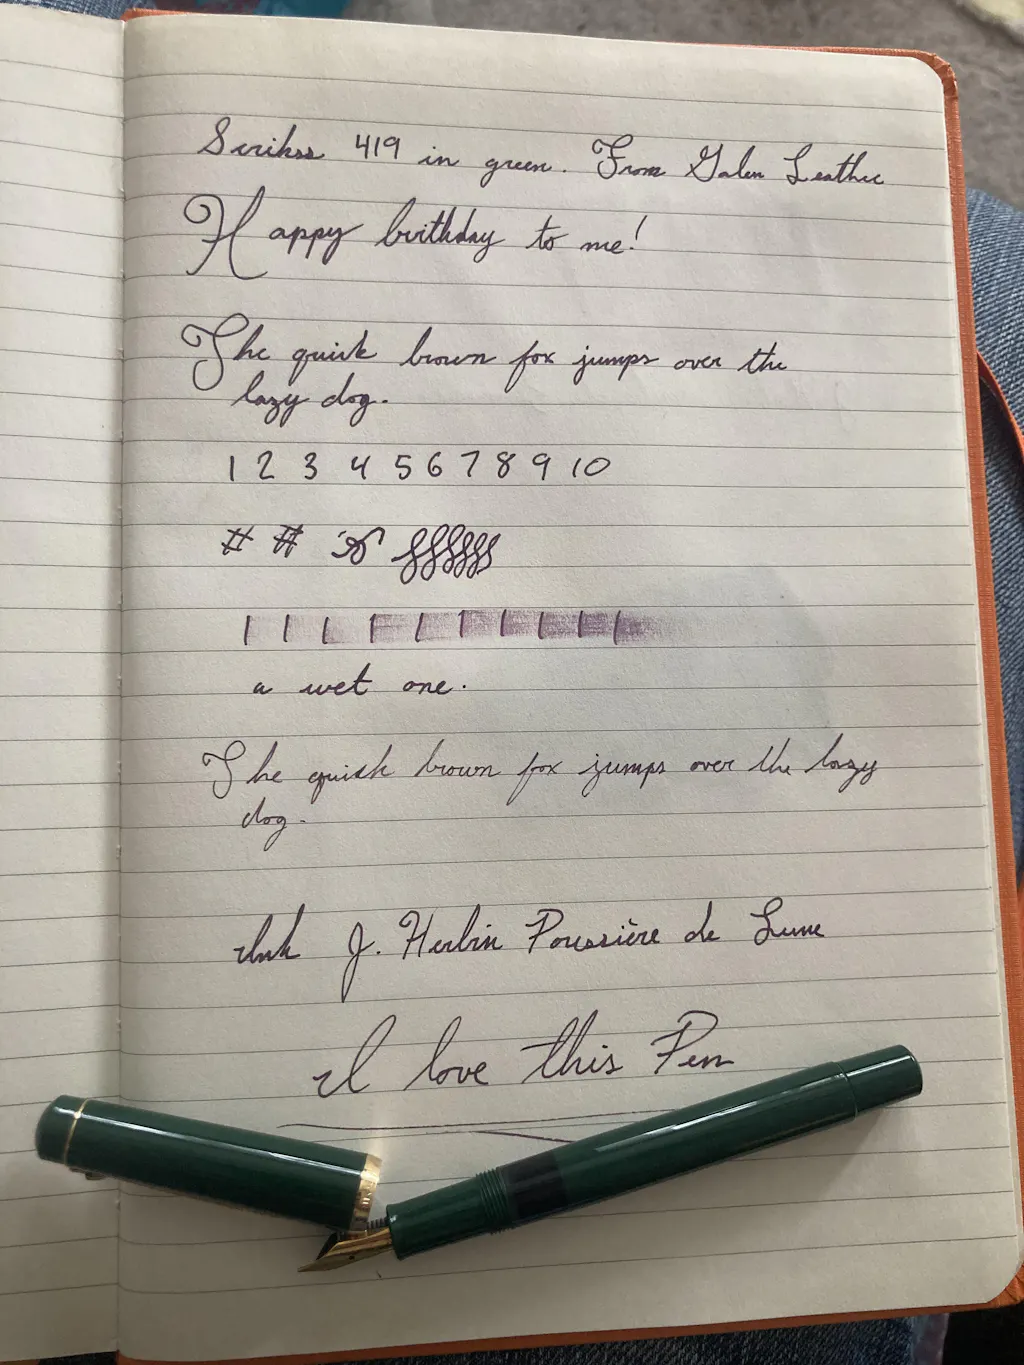 Scrikss 419 in green. From Galen Leather
Happy birthday to me!
The quick brown fox jumps over the
lazy dog.
1 2 3 4 5 6 7 8 9 10
# #
a wet one.
The quick brown fox jumps over the lazy
dog.
Ink J. Herbin Poussière de Lune
I love this Pen